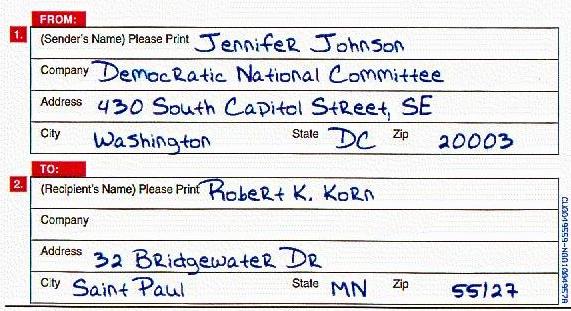 FROM:
1. (Sender's Name) Please Print Jennifer Johnson
Company Democratic National Committee
Address 430 South Capitol Street, SE
City Washington State DC Zip 20003
TO:
2. (Recipient's Name) Please Print Robert K. Korn
Company
Address 32 Bridgewater Dr
City Saint Paul State MN Zip 55127